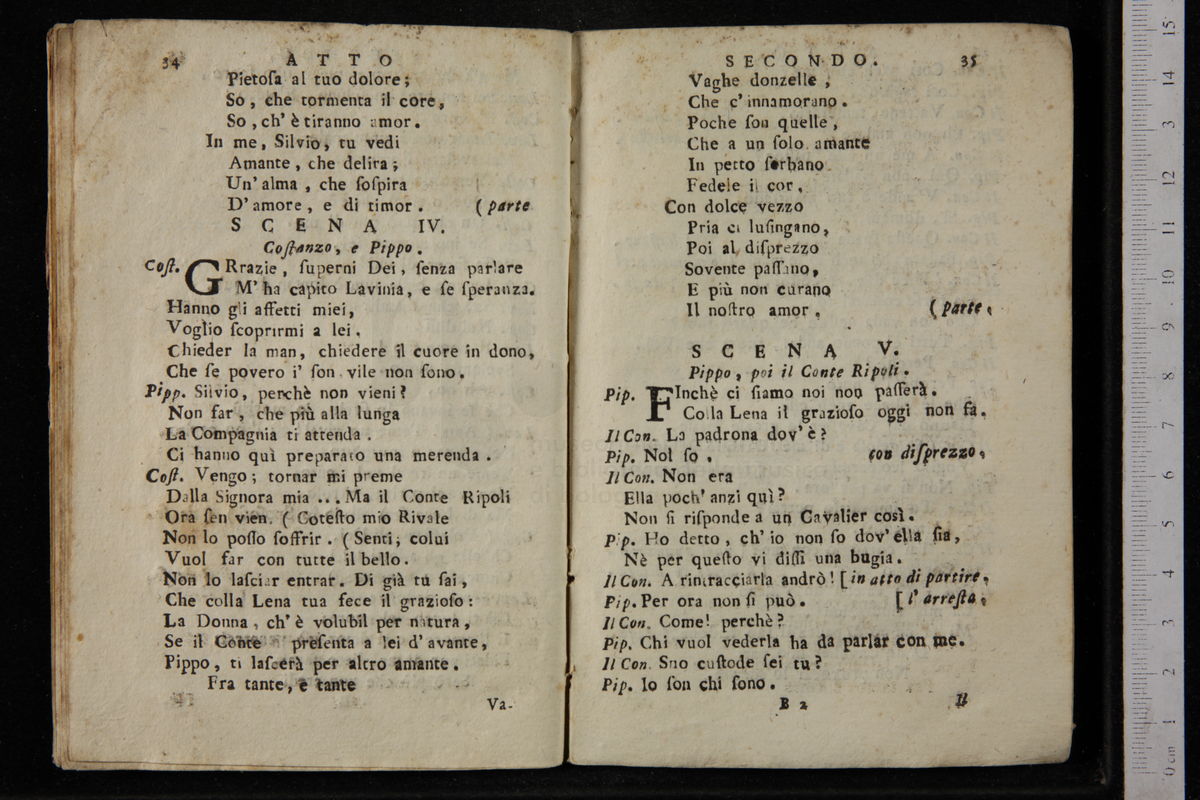 34 ATTO
Pietoſa al tuo dolore;
So, che tormenta il core,
So, ch' è tiranno amor.
In me, Silvio, tu vedi
Amante, che delira;
Un' alma, che ſoſpira
D' amore, e di timor. (parte
SCENA IV.
Coſtanzo, e Pippo.
Coſt. GRrazie, ſuperni Dei, ſenza parlare
M' ha capito Lavinia, e ſe ſperanza.
Hanno gli affetti miei,
Voglio ſcoprirmi a lei.
Chieder la man, chiedere il cuore in dono,
Che ſe povero i' ſon vile non ſono.
Pipp. Silvio, perchè non vieni?
Non far, che più alla lunga
La Compagnia ti attenda.
Ci hanno quì preparato una merenda.
Coſt. Vengo; tornar mi preme
Dalla Signora mia ... Ma il Conte Ripoli
Ora ſen vien. ( Coteſto mio Rivale
Non lo poſſo ſoffrir. ( Senti; colui
Vuol far con tutte il bello.
Non lo laſciar entrar. Di già tu ſai,
Che colla Lena tua fece il grazioſo:
La Donna, ch' è volubil per natura,
Se il Conte preſenta a lei d' avante,
Pippo, ti laſcerà per altro amante.
Fra tante, e tante
Va-
SECONDO. 35
Vaghe donzelle,
Che c' innamorano.
Poche ſon quelle,
Che a un ſolo amante
In petto ſerbano
Fedele il cor,
Con dolce vezzo
Pria ci luſingano,
Poi al diſprezzo
Sovente paſſano,
E più non curano
Il noſtro amor. (parte.
SCENA V.
Pippo, poi il Conte Ripoli.
Pip. FInchè ci ſiamo noi non paſſerà.
Colla Lena il grazioſo oggi non fa.
Il Con. La padrona dov' è?
Pip. Nol ſo. con diſprezzo.
Il Con. Non era
Ella poch' anzi quì?
Non ſi riſponde a un Cavalier così.
Pip. Ho detto, ch' io non ſo dov' ella ſia,
Nè per queſto vi diſſi una bugia.
Il Con. A rintracciarla andrò! [in atto di partire.
Pip. Per ora non ſi può. [l' arreſta.
Il Con. Come! perchè?
Pip. Chi vuol vederla ha da parlar con me.
Il Con. Suo cuſtode ſei tu?
Pip. Io ſon chi ſono.
B 2 Il
0 cm 1 2 3 4 5 6 7 8 9 10 11 12 3 14 15